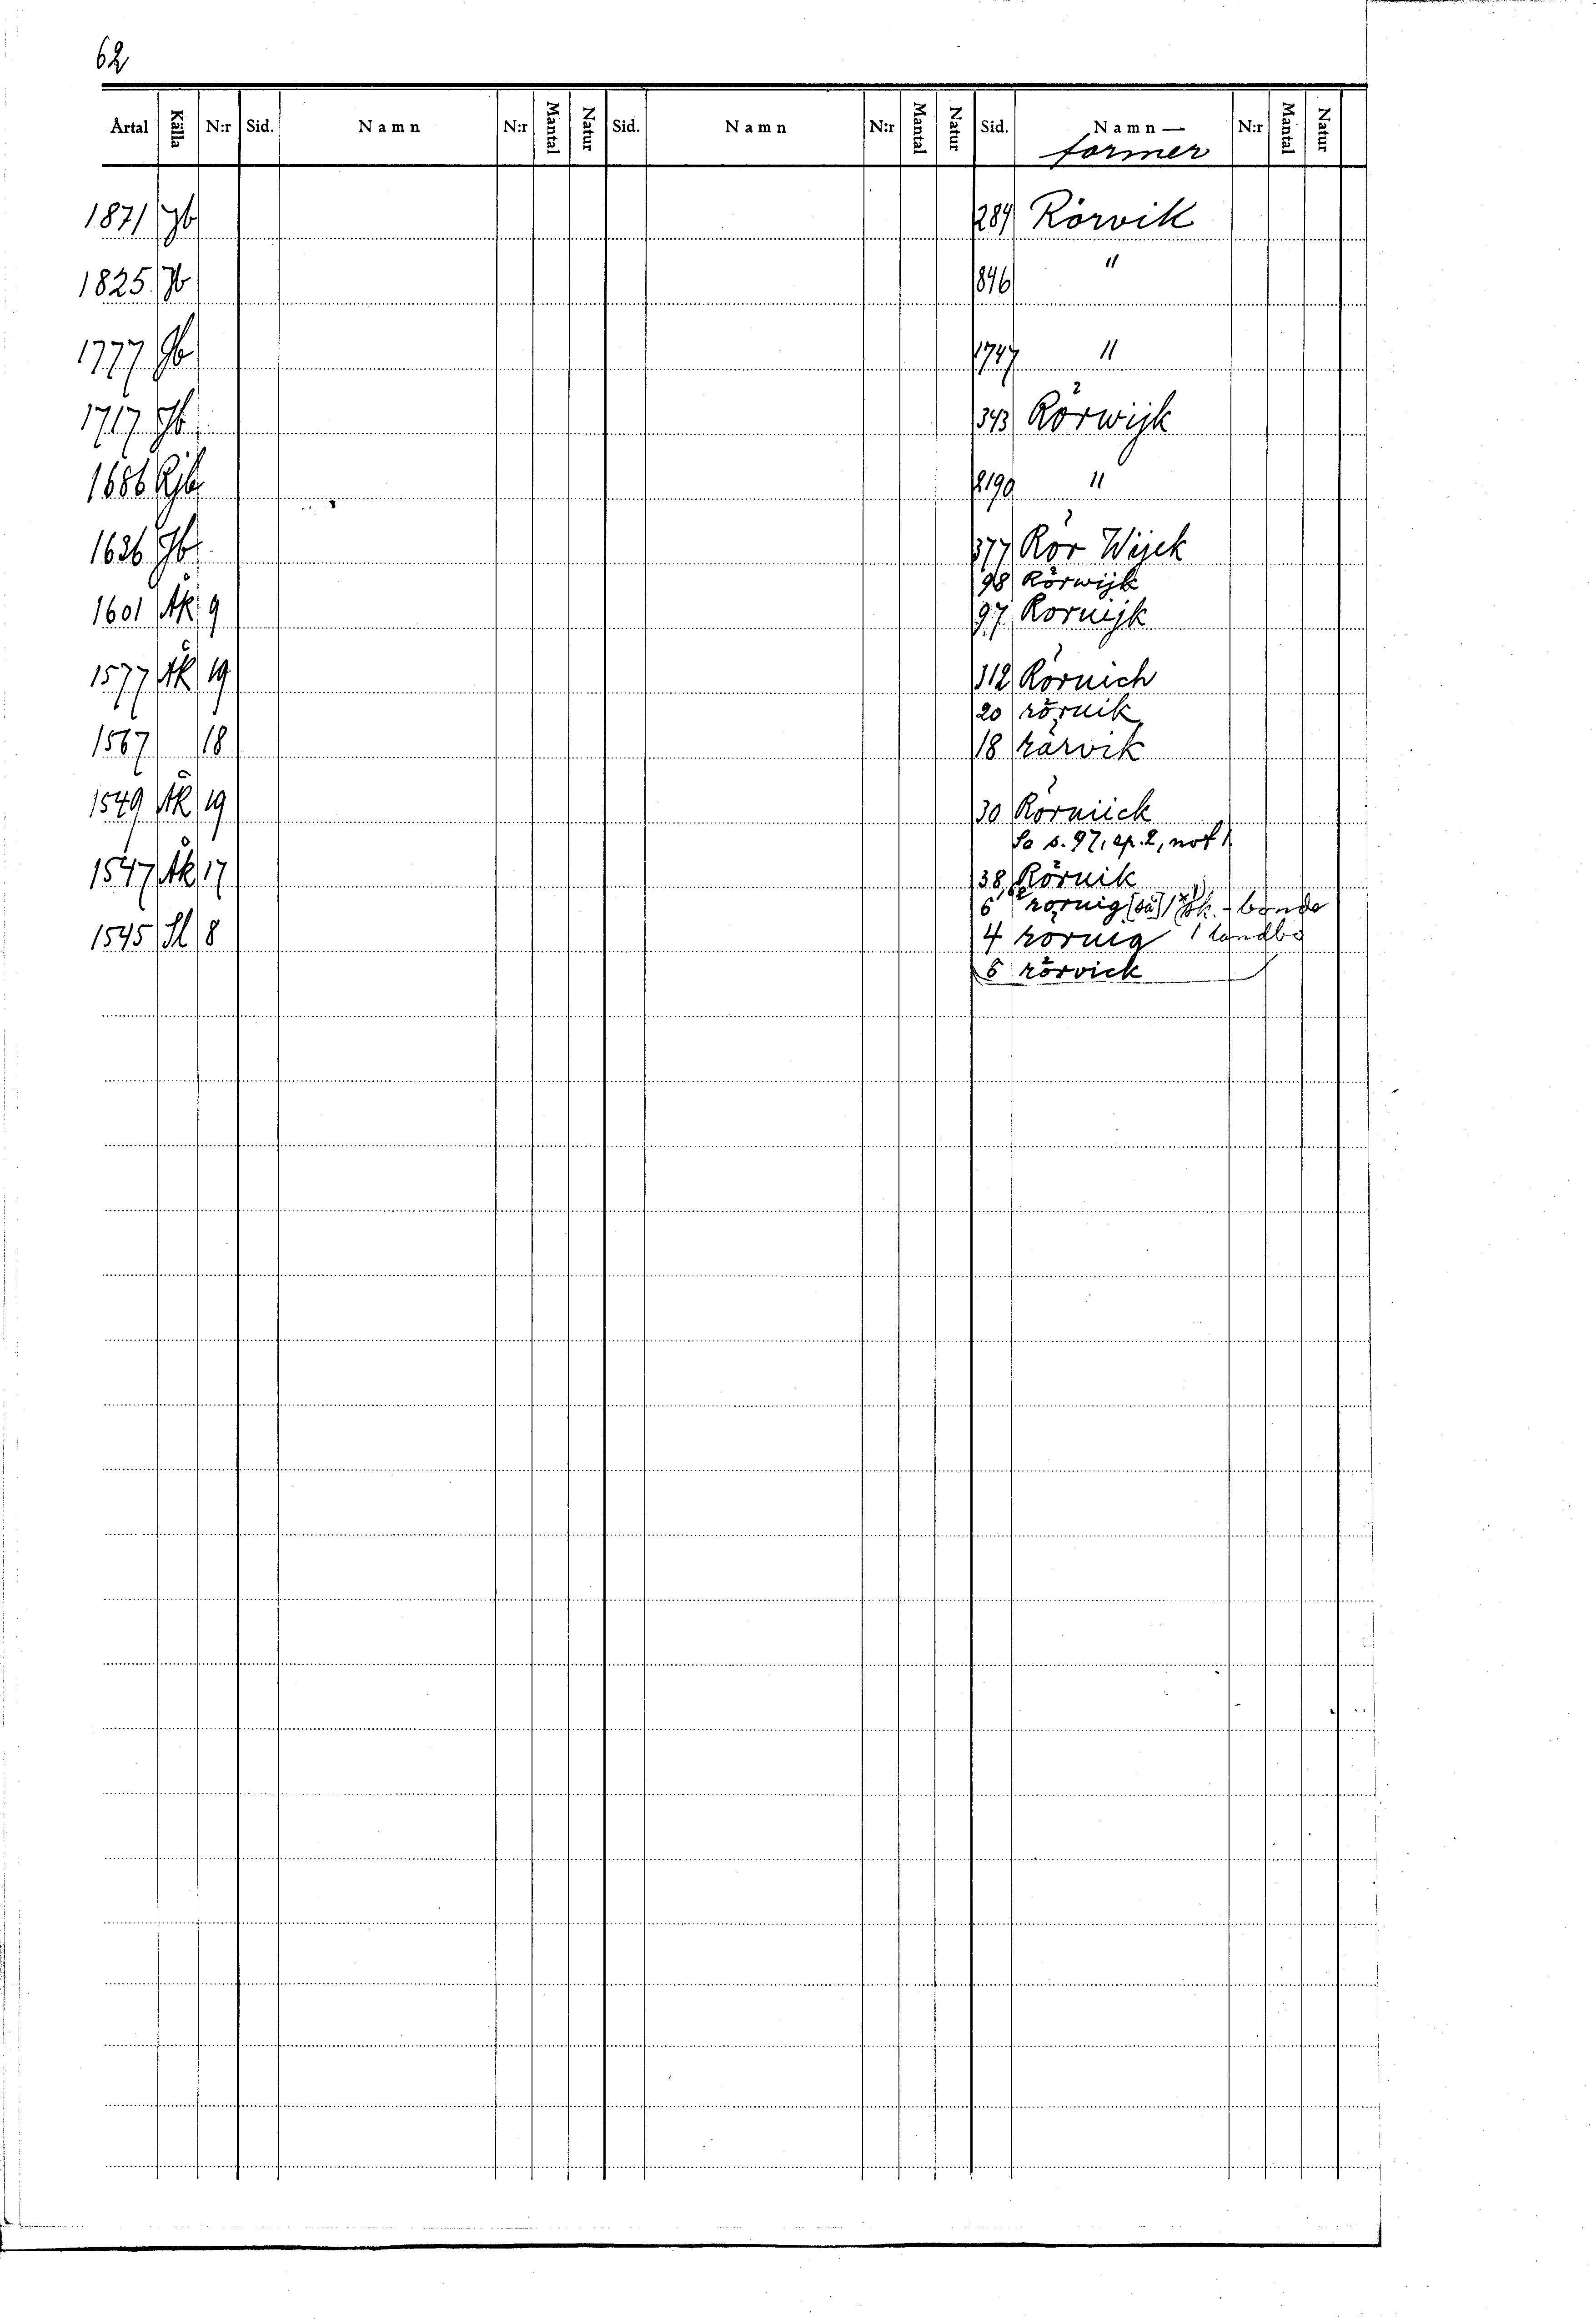 62
Årtal Källa N:r Sid. Namn N:r Mantal Natur Sid. Namn N:r Mantal Natur Sid. Namn— N:r Mantal Natur
former
1871 Jb 284 Rörvik
1825 Jb 846 "
1777 Jb 1747 "
1717 Jb 343 Rörwijk
1686 Rjb 2190 "
1636 Jb 377 Rör Wijck
98 Rörwijk
1601 Åk 9 97 Roruijk
1577 Åk 19 312 Röruich
20 röruik
1567 18 18 rärvik
1549 Åk 19 30 Röruiick
Sa s. 97, sp. 2, not 1
1547 Åk 17 38 Röruik
6 roruig [så] sk.-bonde
1545 Sl 8 4 röruig 1 landbo
6 rörvick